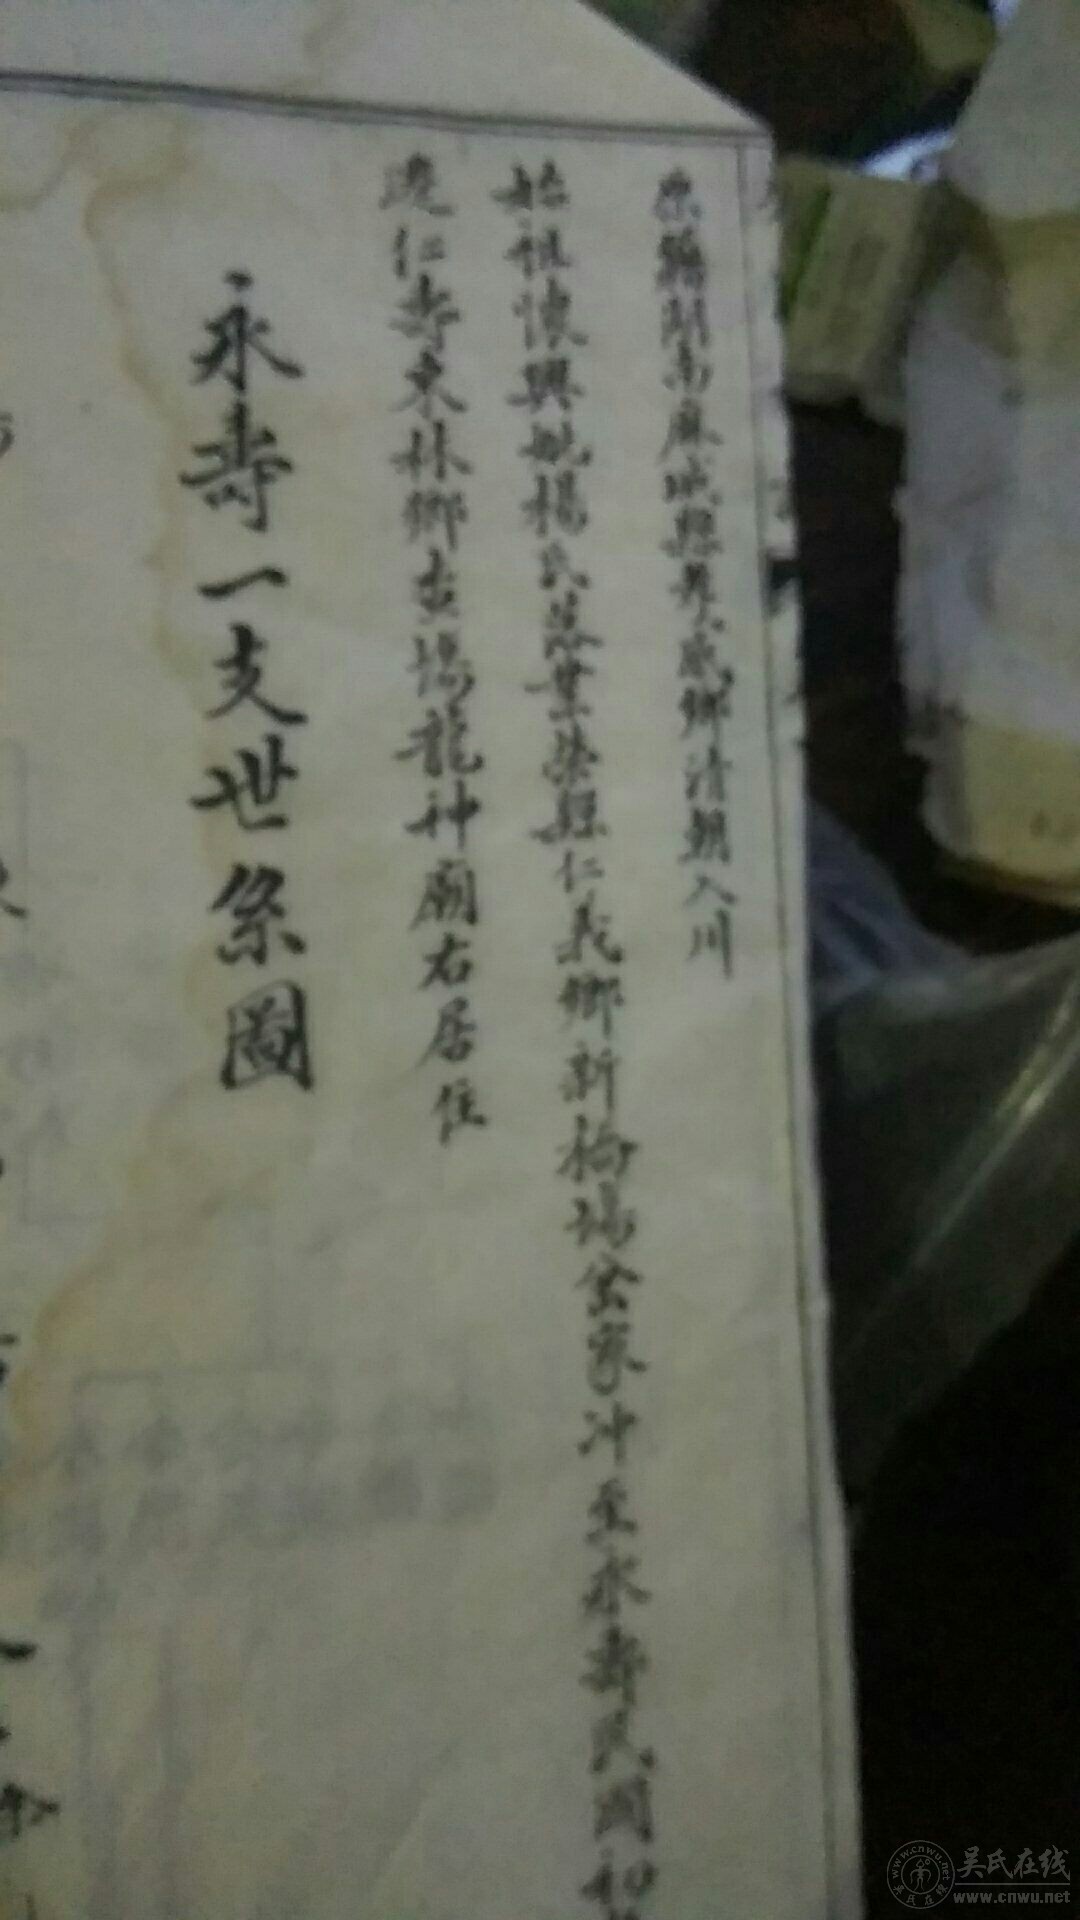 原籍開南麻城縣孝感鄉清朝入川
始祖懷興妣楊氏落業榮縣仁義鄉新橋場岔家冲至永壽民國初
遷仁壽东林鄉吉場龍神廟右居住
永壽一支世系圖
吴氏在线
www.cnwu.net